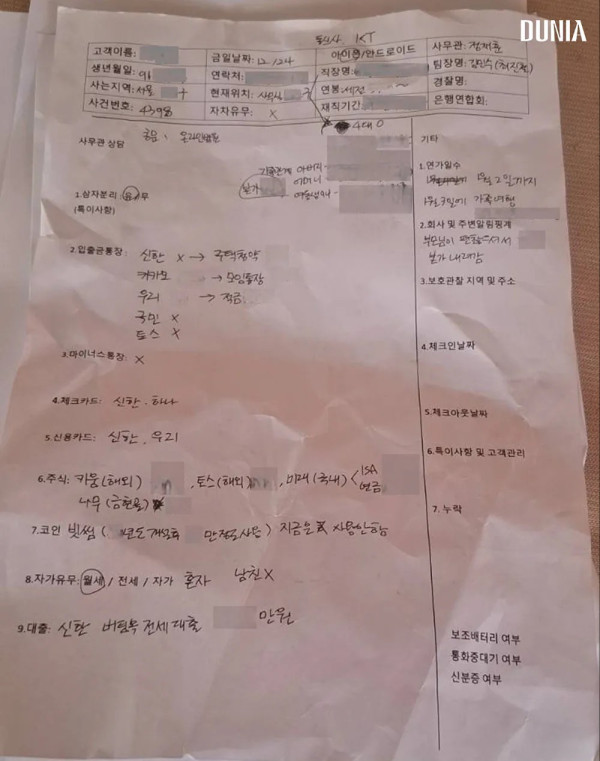 DUNIA
KT
고객이름:
금일날짜: 12/24
아이폰/안드로이드
사무관:
생년월일: 91
연락처:
직장명:
팀장명:
사는지역: 서울
현재위치:
연봉: 세전
경찰명:
사건번호: 4398
자차유무: X
재직기간:
은행연합회:
4대 O
사무관 상담
기타
가족관계 아버지
어머니
본가
1.상자분리: 유/무
(특이사항)
1.연가일수
1월 2일까지
1월 3일에 가족여행
2.회사 및 주변알림핑계
부모님이
본가 내려감
2.입출금통장: 신한 X → 주택청약
카카오 → 모임통장
우리 → 적금
국민 X
토스 X
3.보호관찰 지역 및 주소
3.마이너스통장: X
4.체크인날짜
4.체크카드: 신한, 하나
5.체크아웃날짜
5.신용카드: 신한, 우리
6.특이사항 및 고객관리
6.주식: 키움(해외) , 토스(해외) , 미래(국내) < ISA
연금
나무(금현물)
7. 누락
7.코인 빗썸( 만정도사용) 지금은 사용안함
8.자가유무: 월세 / 전세 / 자가 혼자 남친X
9.대출: 신한 버팀목 전세대출 만원
보조배터리 여부
통화중대기 여부
신분증 여부